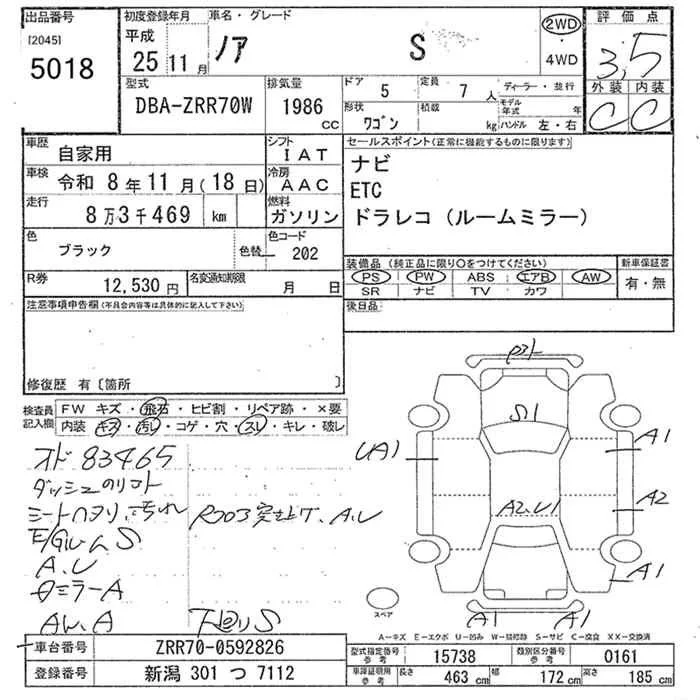 出品番号
[2045]
5018
初度登録年月
平成
25 11 月
車名・グレード
ノア S
2WD
4WD
評価点
3.5
外装 内装
C C
型式
DBA-ZRR70W
排気量
1986
CC
ドア 5
定員 7 人
形状 ワゴン
積載 kg
ディーラー・並行
モデル年式 年
ハンドル 左・右
車歴 自家用
シフト IAT
車検 令和 8年11月(18日)
冷房 AAC
走行 8万3千469 km
燃料 ガソリン
色 ブラック
色替
色コード 202
R券 12,530円
名変通知期限 月 日
セールスポイント(正常に機能するものに限ります)
ナビ
ETC
ドラレコ(ルームミラー)
装備品(純正品に限り〇をつけてください)
PS PW ABS エアB AW
SR ナビ TV カワ
新車保証書
有・無
後日品
注意事項申告欄(不具合内容等は具体的に記入して下さい)
修復歴 有〔箇所 〕
検査員記入欄
FW キズ・飛石・ヒビ割・リペア跡・×要
内装 キズ・汚レ・コゲ・穴・スレ・キレ・破レ
オド 83465
ダッシュのリフト
シートヘタリ、汚れ
ルーフ突上げ、A.U
S
A.U
ミラーA
AW.A
下回りS
S1
UA1
A1
A2.U1
A2
A1
A1
A1
スペア
A―キズ E―エクボ U―凹み W―補修跡 S―サビ C―腐食 XX―交換済
車台番号 ZRR70-0592826
登録番号 新潟 301 つ 7112
型式指定番号 参考 15738
類別区分番号 参考 0161
車庫証明用 参考 長さ 463 cm 幅 172 cm 高さ 185 cm